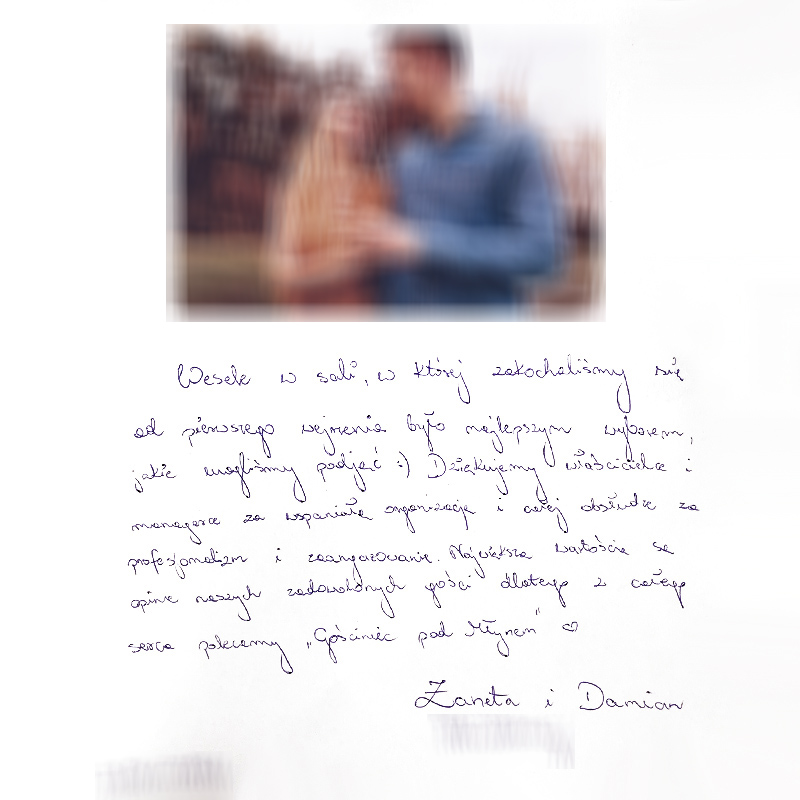 Wesele w sali, w której zakochaliśmy się
od pierwszego wejrzenia było najlepszym wyborem,
jakie mogliśmy podjąć :) Dziękujemy właścicielce i
managerce za wspaniałą organizację i całej obsłudze za
profesjonalizm i zaangażowanie. Największą wartością są
opinie naszych zadowolonych gości dlatego z całego
serca polecamy „Gościniec pod Młynem" ♡
Żaneta i Damian